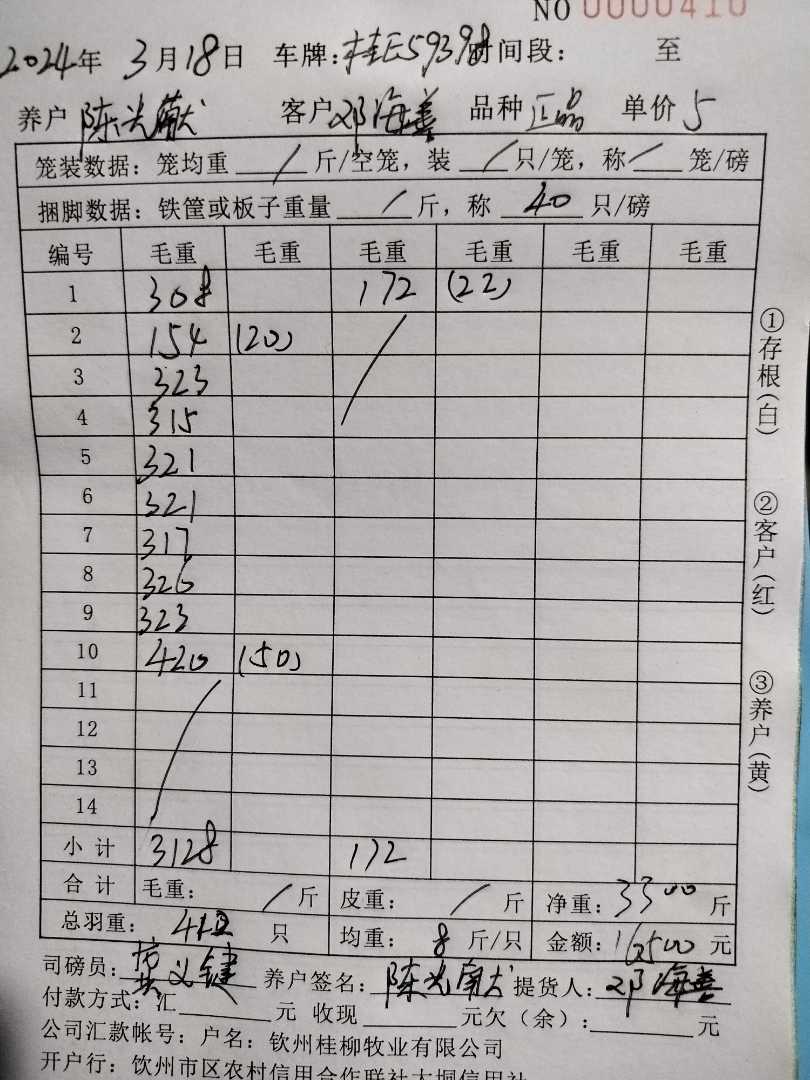 NO 0000410
2024年 3月18日 车牌:桂E59398 时间段: 至
养户 陈光献 客户 邓海善 品种 正品 单价 5
笼装数据: 笼均重 / 斤/空笼, 装 / 只/笼, 称 / 笼/磅
捆脚数据: 铁筐或板子重量 / 斤, 称 40 只/磅
编号 毛重 毛重 毛重 毛重 毛重 毛重
1 308 172 (22)
2 154 (20)
3 323
4 315
5 321
6 321
7 317
8 326
9 323
10 420 (50)
11
12
13
14
小计 3128 172
合计 毛重: / 斤 皮重: / 斤 净重: 3300 斤
总羽重: 412 只 均重: 8 斤/只 金额: 16500 元
司磅员: 义键 养户签名: 陈光献 提货人: 邓海善
付款方式: 汇 元 收现 元欠(余): 元
公司汇款帐号: 户名: 钦州桂柳牧业有限公司
开户行: 钦州市区农村信用合作联社大垌信用社
①存根(白)
②客户(红)
③养户(黄)